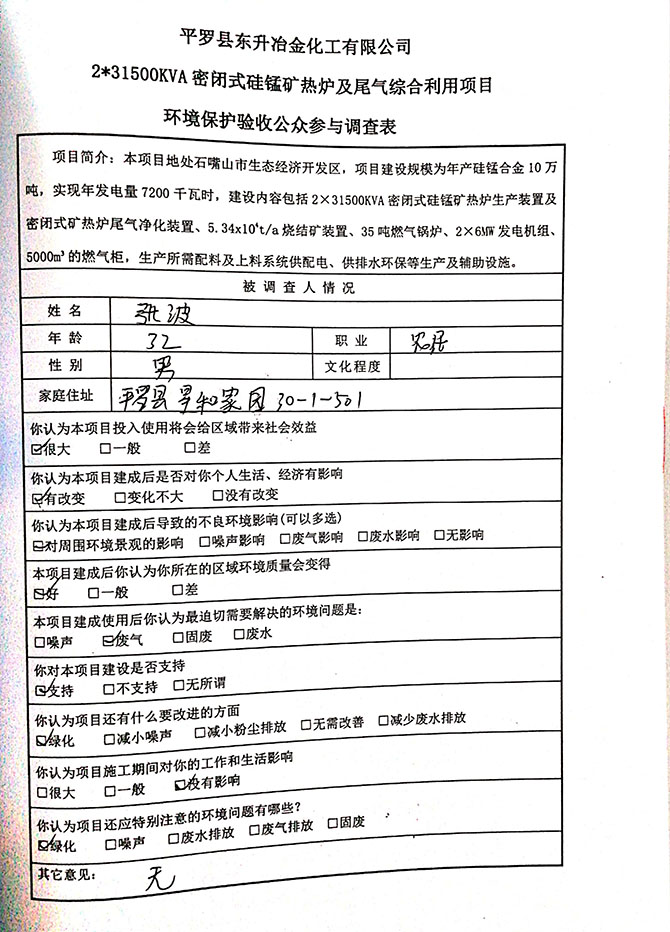 平罗县东升冶金化工有限公司
2*31500KVA 密闭式硅锰矿热炉及尾气综合利用项目
环境保护验收公众参与调查表
项目简介：本项目地处石嘴山市生态经济开发区，项目建设规模为年产硅锰合金 10 万
吨，实现年发电量 7200 千瓦时，建设内容包括 2×31500KVA 密闭式硅锰矿热炉生产装置及
密闭式矿热炉尾气净化装置、5.34x10⁴t/a 烧结矿装置、35 吨燃气锅炉、2×6MW 发电机组、
5000m³的燃气柜，生产所需配料及上料系统供配电、供排水环保等生产及辅助设施。
被调查人情况
姓名 张波
年龄 32 职业
性别 男 文化程度
家庭住址 平罗县 和家园 30-1-501
你认为本项目投入使用将会给区域带来社会效益
☑很大 □一般 □差
你认为本项目建成后是否对你个人生活、经济有影响
☑有改变 □变化不大 □没有改变
你认为本项目建成后导致的不良环境影响(可以多选)
☑对周围环境景观的影响 □噪声影响 □废气影响 □废水影响 □无影响
本项目建成后你认为你所在的区域环境质量会变得
☑好 □一般 □差
本项目建成使用后你认为最迫切需要解决的环境问题是：
□噪声 ☑废气 □固废 □废水
你对本项目建设是否支持
☑支持 □不支持 □无所谓
你认为项目还有什么要改进的方面
☑绿化 □减小噪声 □减小粉尘排放 □无需改善 □减少废水排放
你认为项目施工期间对你的工作和生活影响
□很大 □一般 ☑没有影响
你认为项目还应特别注意的环境问题有哪些？
☑绿化 □噪声 □废水排放 □废气排放 □固废
其它意见： 无